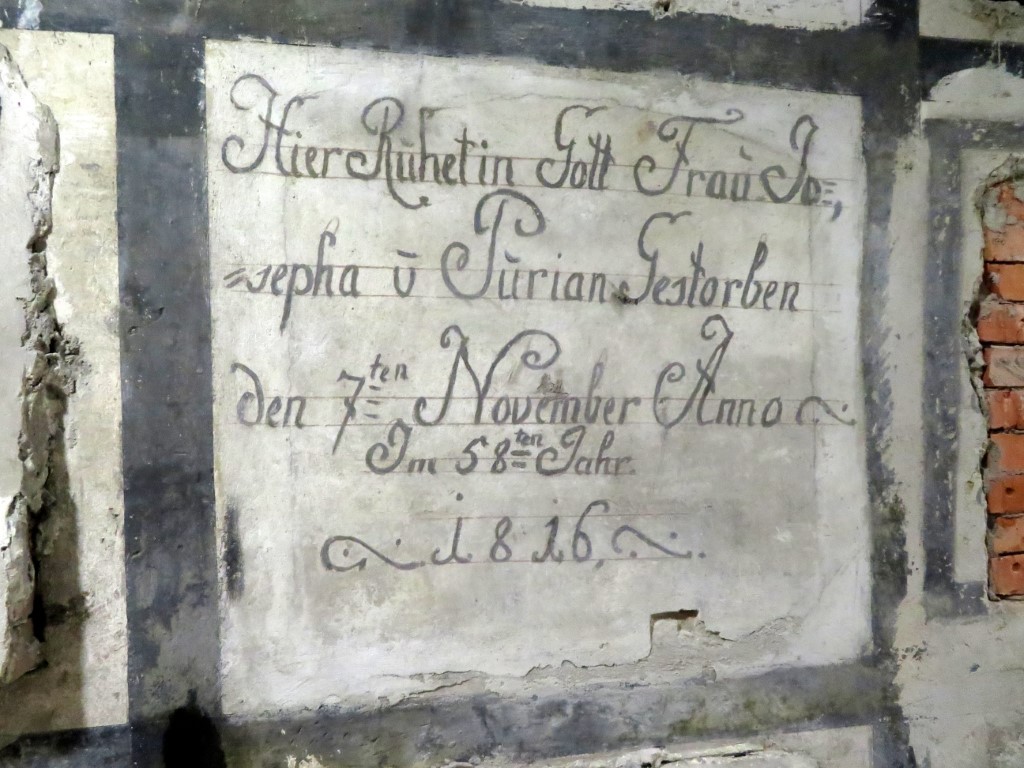 Hier Rühet in Gott Fraŭ Jo=,
=sepha ū Pŭrian Gestorben
den 7ten November Anno
Im 58ten Jahr.
1816.